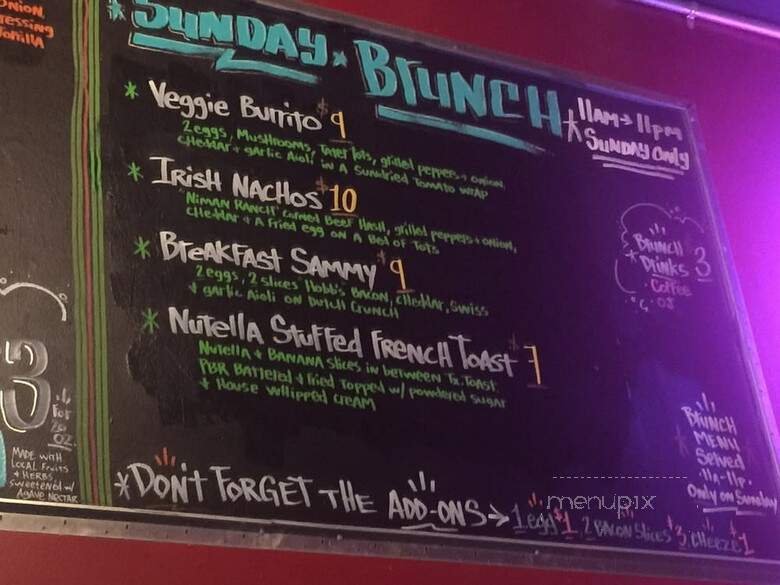 ONION
Dressing
Tortilla
SUNDAY BRUNCH
11AM → 11PM
SUNDAY ONLY
Veggie Burrito $9
2 eggs, Mushrooms, Tater Tots, grilled peppers + onion,
CHeddar + garlic Aioli in A Sundried Tomato wrap
IRISH NACHOS $10
"Niman Ranch" Corned Beef Hash, grilled peppers + onion,
CHeddar + A Fried egg on A Bed of Tots
BreaKFasT SAMMY $9
2 eggs, 2 slices Hobb's BACON, CHeddar, Swiss
+ garlic Aioli on Dutch Crunch
Nutella Stuffed FRENCH Toast $7
Nutella + BANANA Slices in between Tx. Toast,
PBR Battered + Fried Topped w/ powdered sugar
+ House Whipped cream
BruncH
Drinks 3
Coffee
OJ
3
For
20
oz.
MADE with
Local Fruits
+ HERBS
Sweetened w/
Agave Nectar
BruncH
MENU
Served
11a-11p.
Only on Sunday
DON'T FORGET THE ADD-ONS → 1 egg $1, 2 BACON Slices $3, CHEEZE $1
menupix